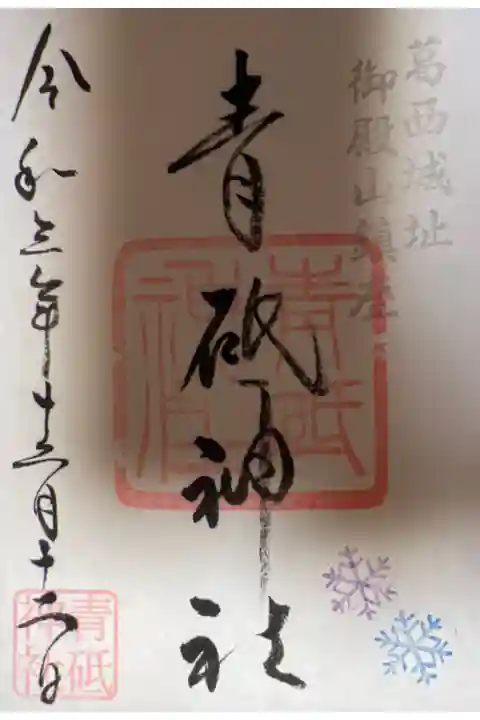 葛西城址
御殿山鎮座
青砥神社
青砥神社
令和三年十二月十二日
青砥神社